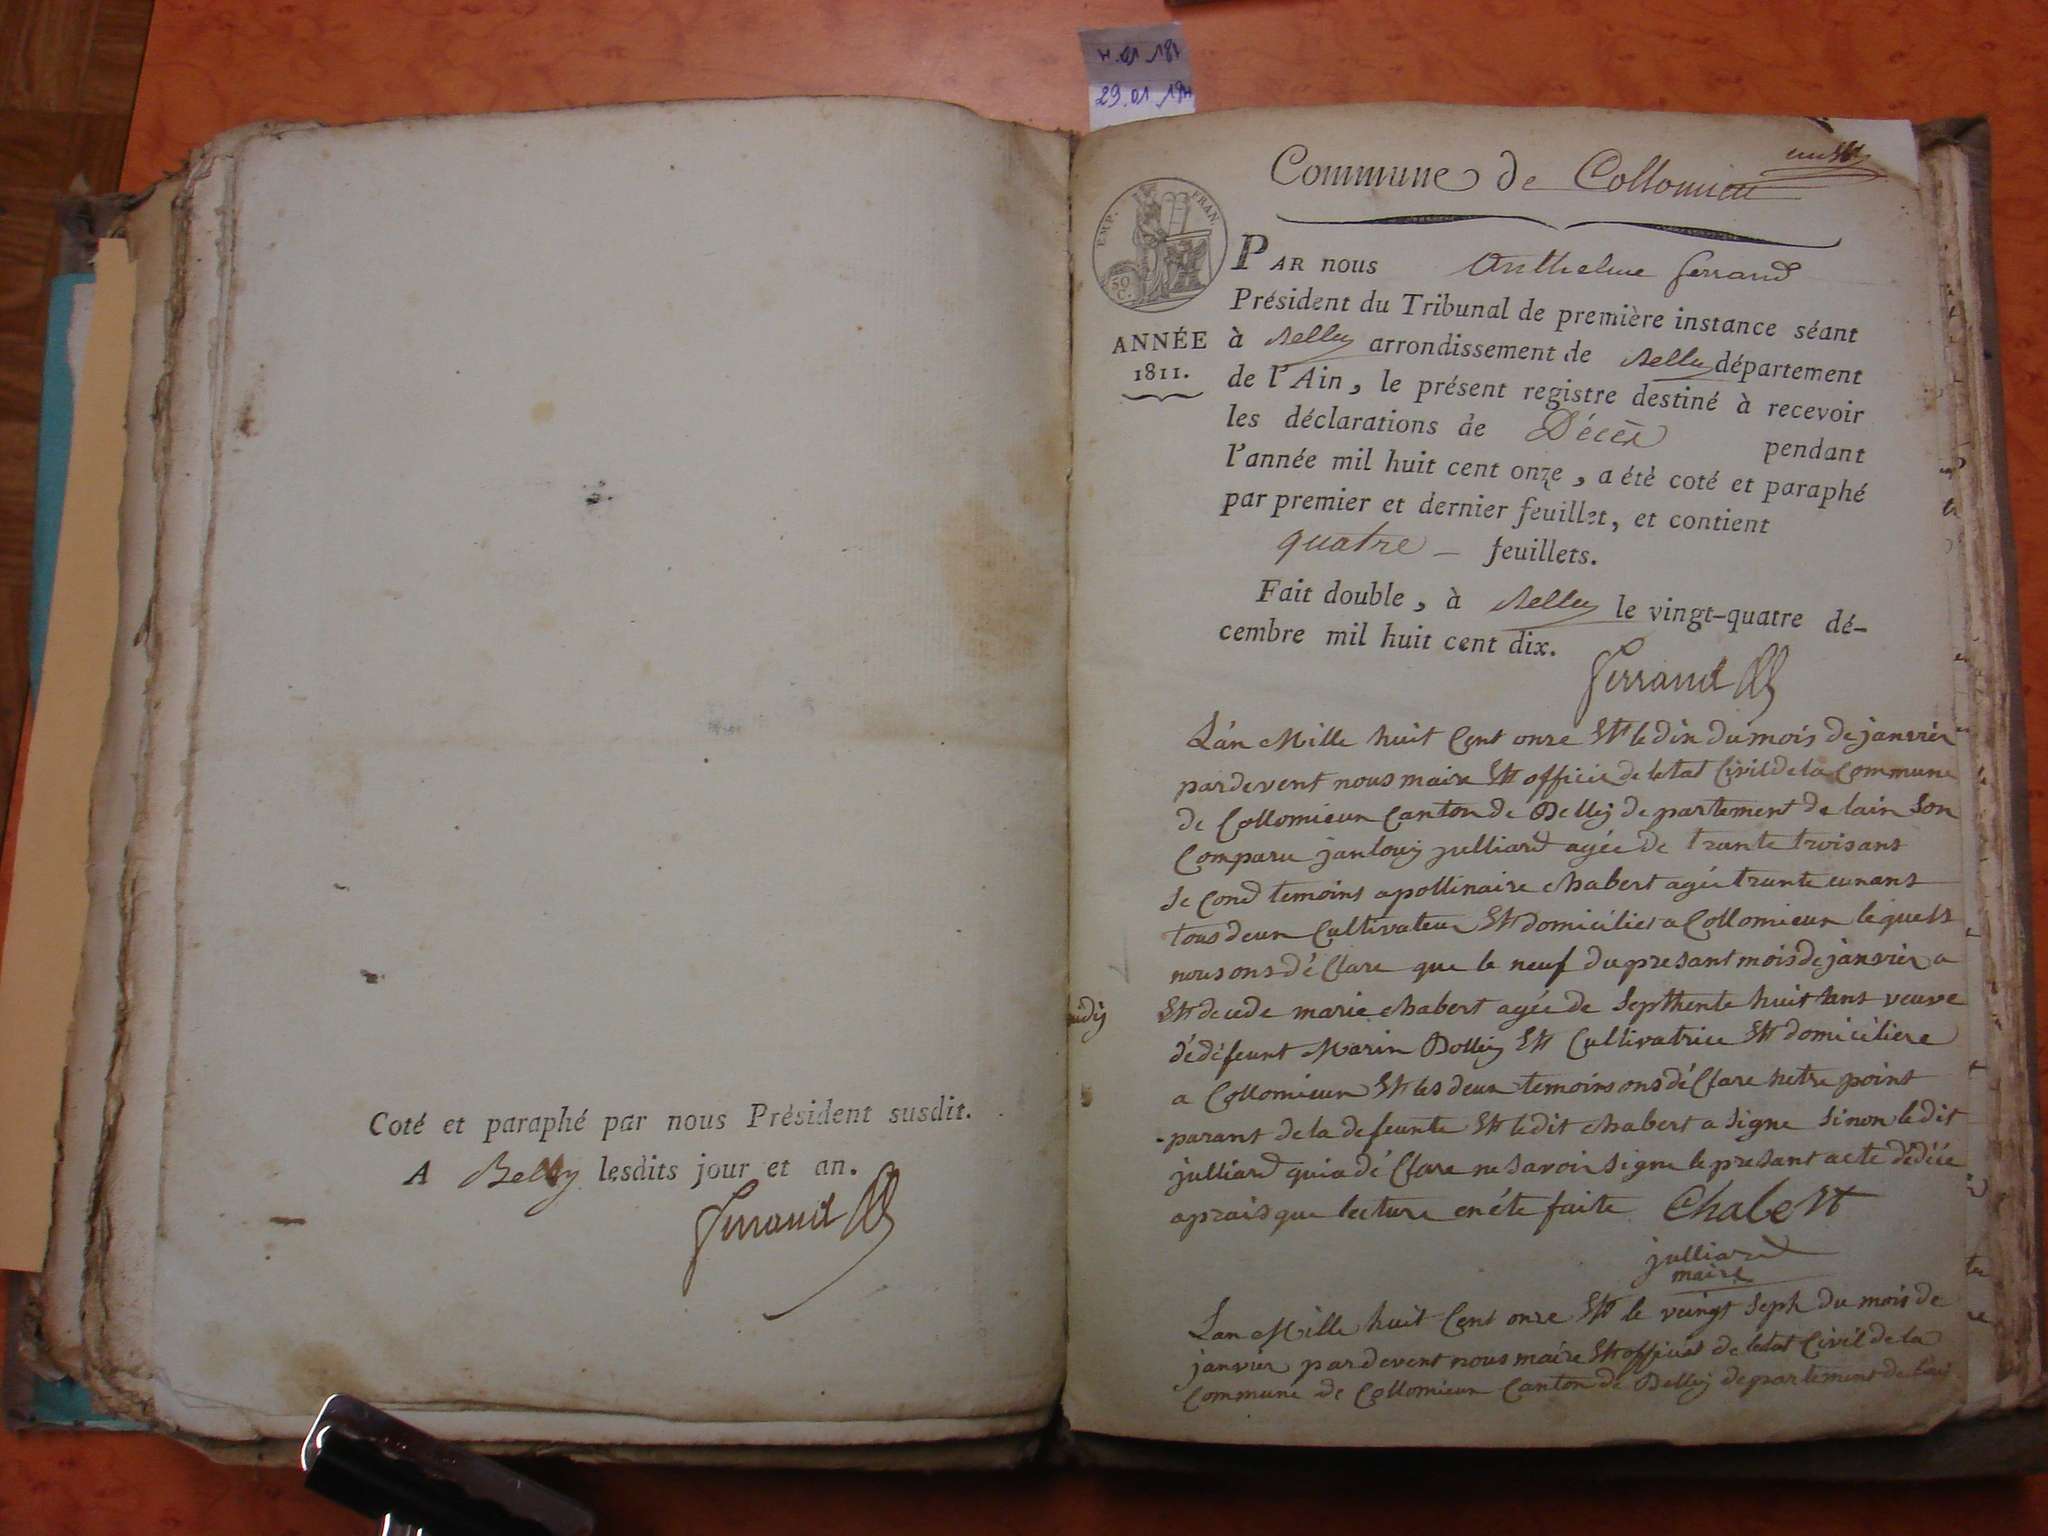 29.01.1811
Coté et paraphé par nous Président susdit.
A Belley lesdits jour et an.
Ferrand
Commune de Collomieu
EMP. FRAN.
50 C.
ANNÉE
1811.
PAR nous Anthelme ferrand
Président du Tribunal de première instance séant
à Belley arrondissement de Belley département
de l'Ain, le présent registre destiné à recevoir
les déclarations de Décès pendant
l'année mil huit cent onze, a été coté et paraphé
par premier et dernier feuillet, et contient
quatre – feuillets.
Fait double, à Belley le vingt-quatre dé-
cembre mil huit cent dix.
Ferrand
L'an Mille huit Cent onze Ett le dix du mois de janvier
pardevent nous maire Ett officie de letat Civil de la Commune
de Collomieux Canton de Belley departement de lain Son
Comparu janlouis julliard agée de trante trois ans
Second temoins apollinaire chabert agée trante eun ans
tous deux Cultivateur Ett domicilies a Collomieux lequels
nous ons déClare que le neuf du presant mois de janvier a
Ett decede marie chabert agée de Septhente huit ans veuve
dédéfeunt Marin Bolley Ett Cultivatrice Ett domiciliere
a Collomieux Ett les deux temoins ons déClare netre point
parant de la defeunte Ett ledit chabert a Signe Sinon ledit
julliard qui a déClare ne Savoir Signe le presant acte dédéce
aprais que lecture en éte faite Chabert
julliard
maire
Lan Mille huit Cent onze Ett le veingt Seph du mois de
janvier pardevent nous maire Ett officiet de letat Civil de la
Commune de Collomieux Canton de Belley departement de lain